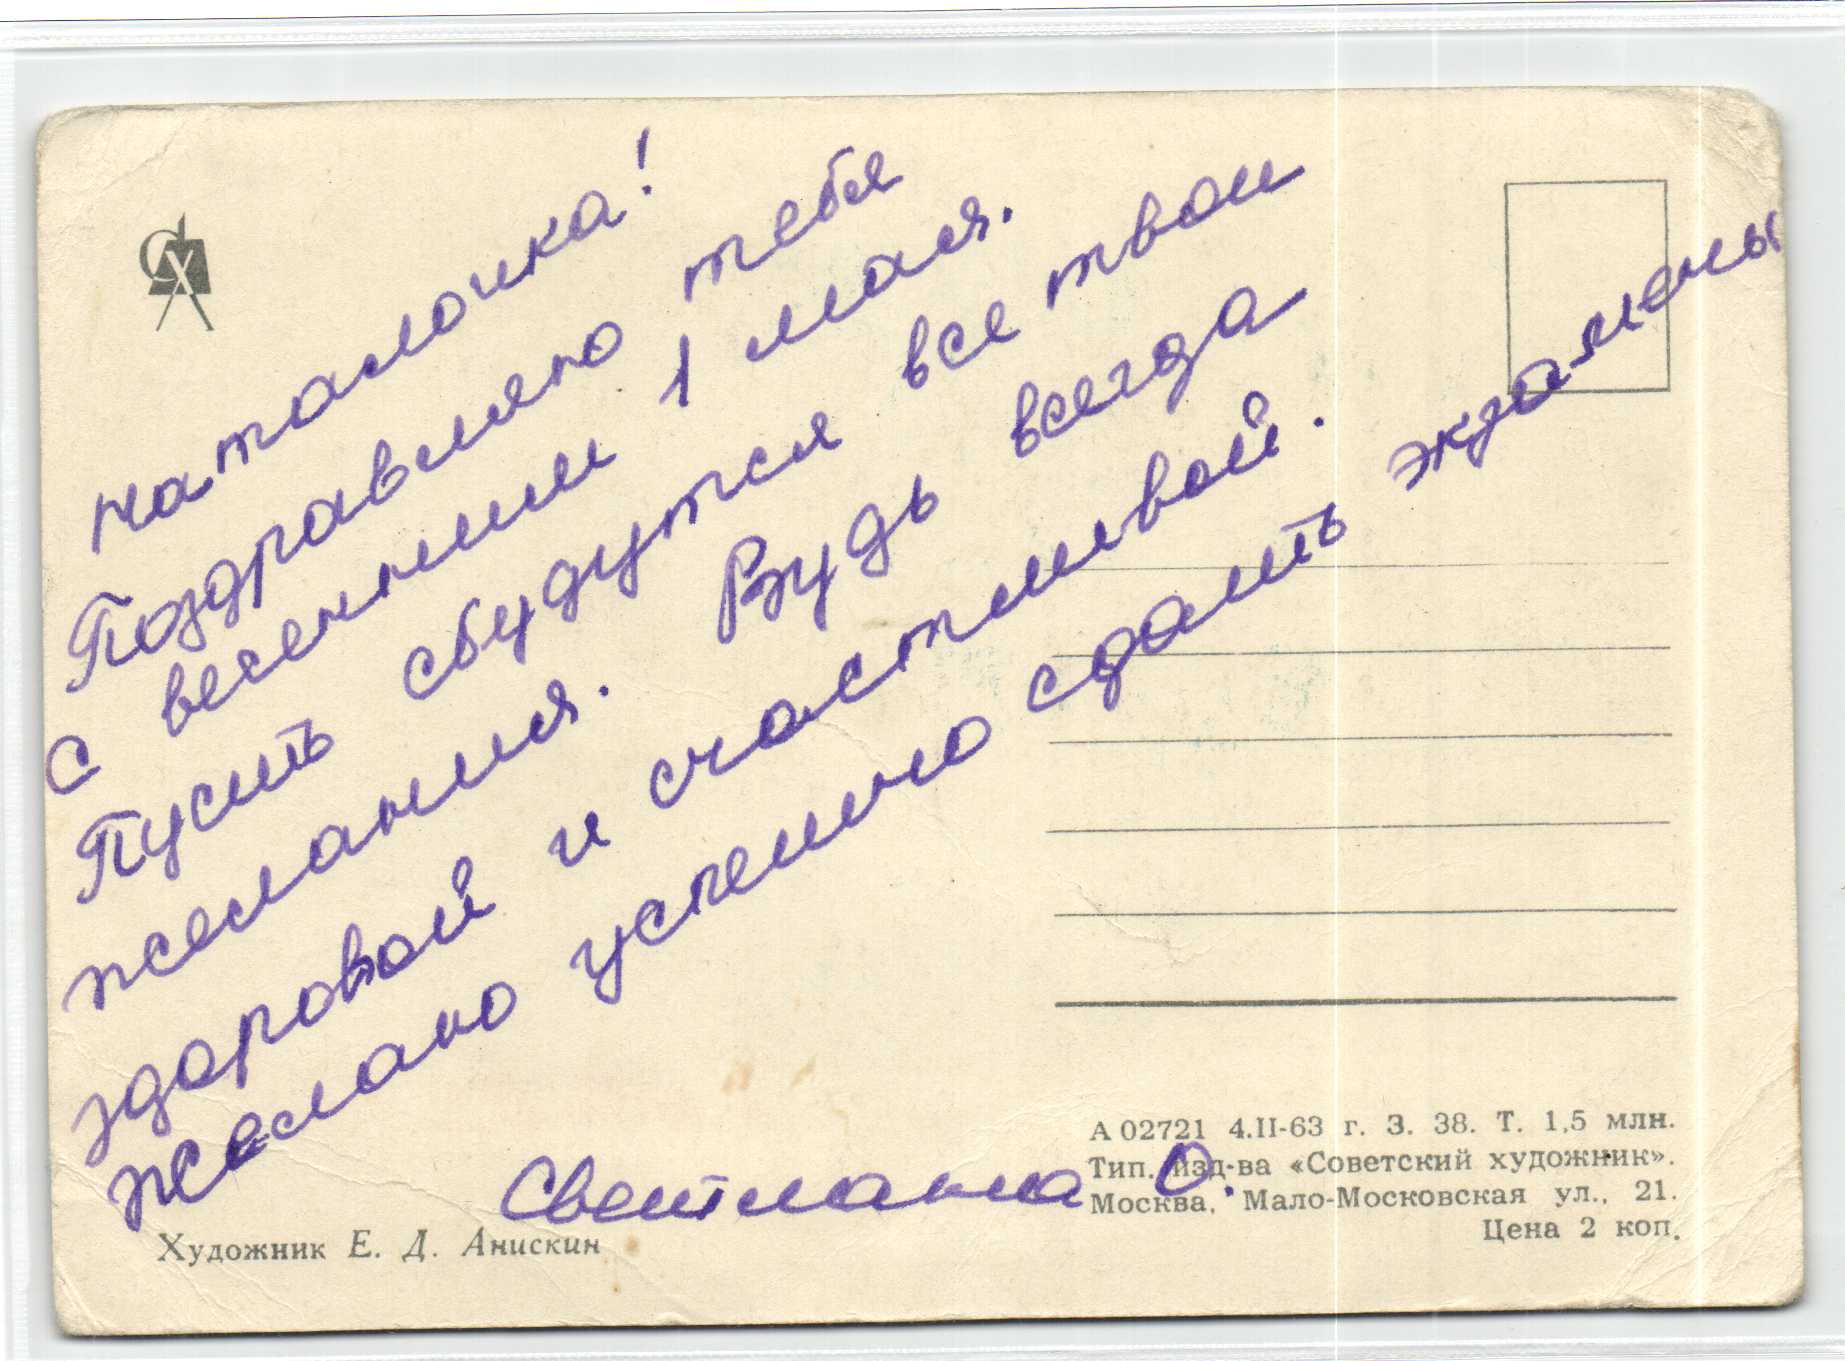 Наталочка!
Поздравляю тебя
с весенним 1 мая.
Пусть сбудутся все твои
желания. Будь всегда
здоровой и счастливой.
Желаю успешно сдать экзамены
Светлана О.
Художник Е. Д. Анискин
А 02721 4.II-63 г. З. 38. Т. 1,5 млн.
Тип. изд-ва «Советский художник».
Москва, Мало-Московская ул., 21.
Цена 2 коп.